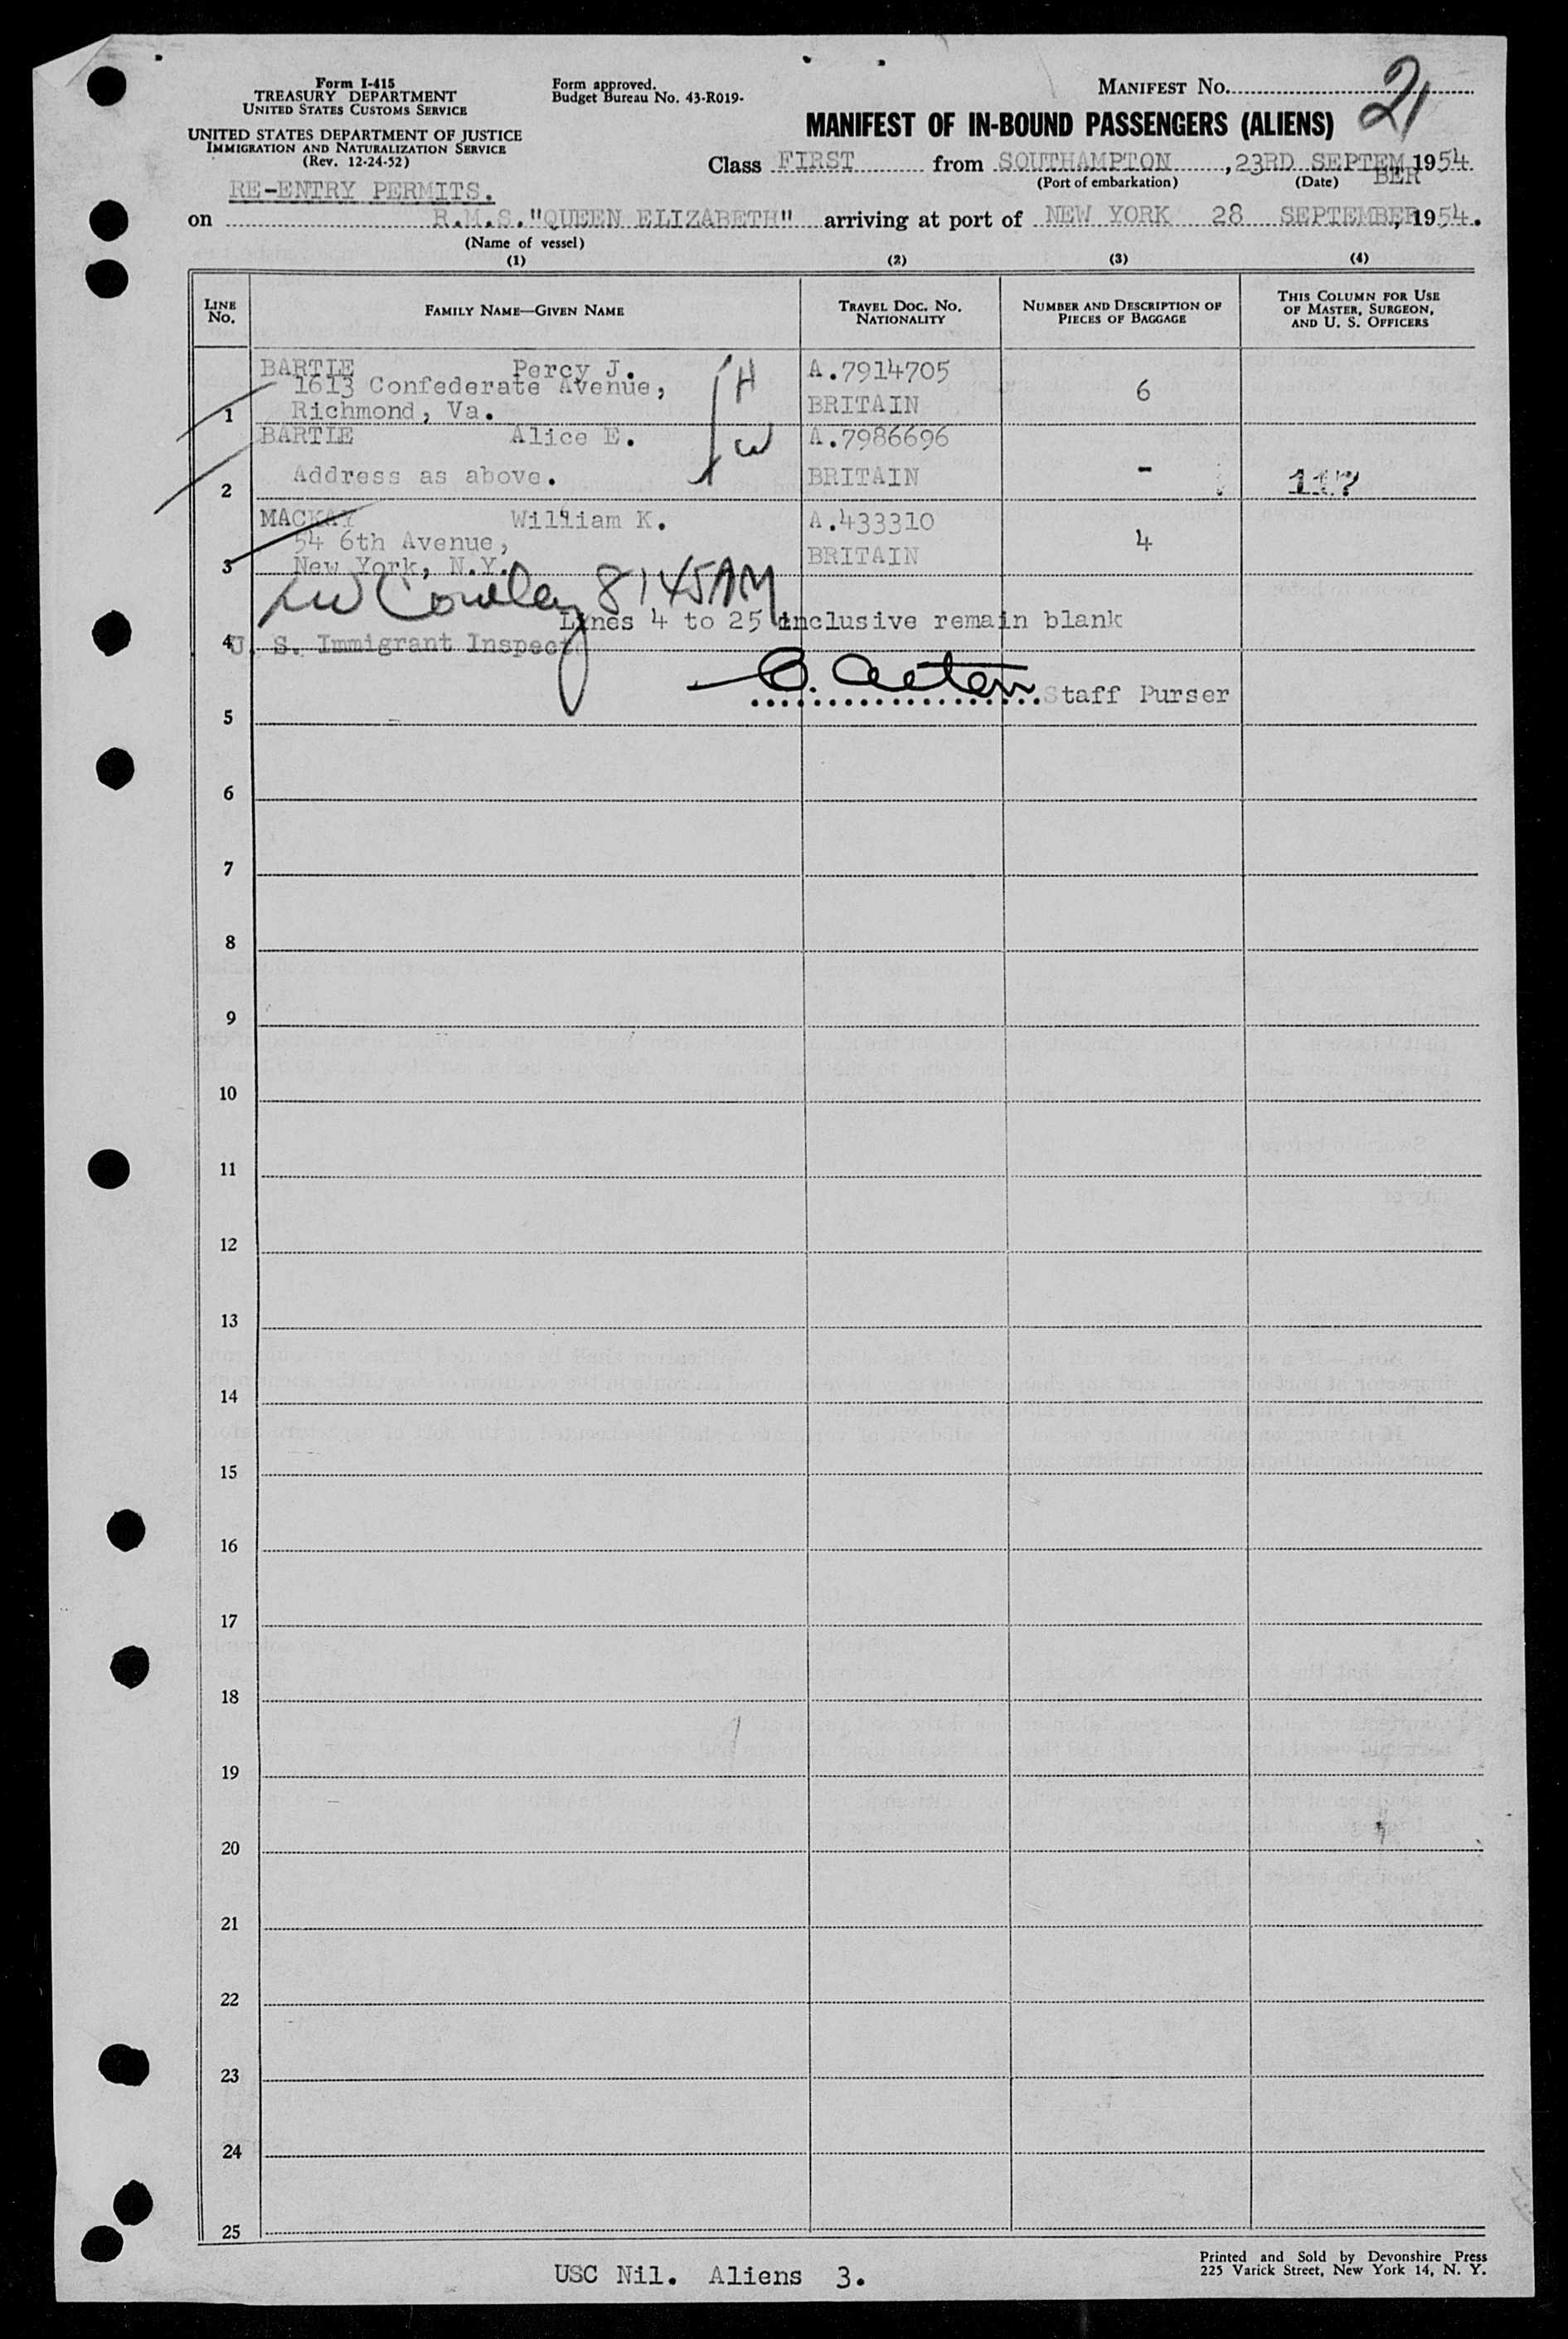 Form I-415
TREASURY DEPARTMENT
UNITED STATES CUSTOMS SERVICE
UNITED STATES DEPARTMENT OF JUSTICE
IMMIGRATION AND NATURALIZATION SERVICE
(Rev. 12-24-52)
Form approved.
Budget Bureau No. 43-R019-
MANIFEST NO. 21
MANIFEST OF IN-BOUND PASSENGERS (ALIENS)
Class FIRST from SOUTHAMPTON, 23RD SEPTEMBER 1954
(Port of embarkation) (Date)
RE-ENTRY PERMITS.
on R.M.S."QUEEN ELIZABETH" arriving at port of NEW YORK 28 SEPTEMBER, 1954.
(Name of vessel)
(1) (2) (3) (4)
LINE NO.
FAMILY NAME—GIVEN NAME
TRAVEL DOC. NO. NATIONALITY
NUMBER AND DESCRIPTION OF PIECES OF BAGGAGE
THIS COLUMN FOR USE OF MASTER, SURGEON, AND U. S. OFFICERS
BARTIE Percy J. H A.7914705
1613 Confederate Avenue, 6
1 Richmond, Va. BRITAIN
BARTIE Alice E. W A.7986696
Address as above. BRITAIN -
2 117
MACKAY William K. A.433310
54 6th Avenue, 4
3 New York, N.Y. BRITAIN
Cowley 8:45AM
Lines 4 to 25 inclusive remain blank
4 U. S. Immigrant Inspect
Staff Purser
5
6
7
8
9
10
11
12
13
14
15
16
17
18
19
20
21
22
23
24
25
USC Nil. Aliens 3.
Printed and Sold by Devonshire Press
225 Varick Street, New York 14, N. Y.